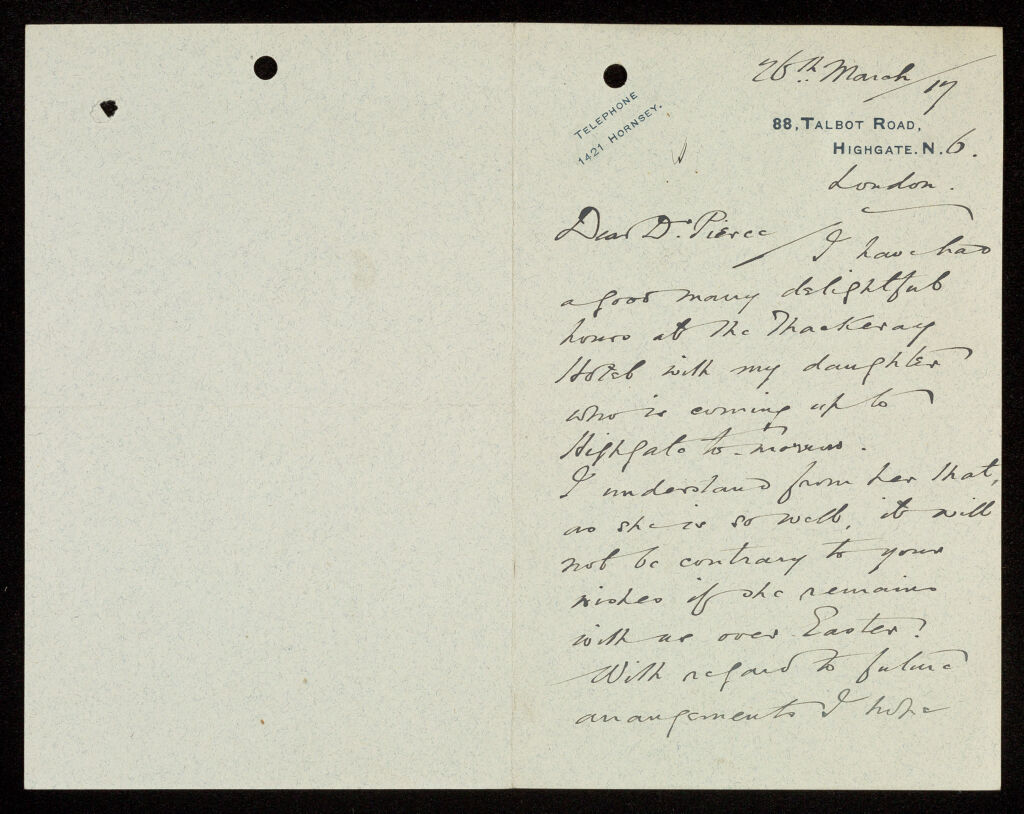 26th March / 17
TELEPHONE
1421 HORNSEY.
88, TALBOT ROAD,
HIGHGATE. N. 6.
London.
Dear Dr. Pierce
I have had
a good many delightful
hours at the Thackeray
Hotel with my daughter
who is coming up to
Highgate to-morrow.
I understand from her that,
as she is so well, it will
not be contrary to your
wishes if she remains
with us over Easter?
With regard to future
arrangements I hope